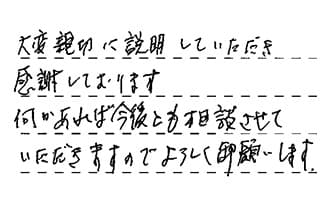 大変親切に説明していただき
感謝しております
何かあれば今後とも相談させて
いただきますのでよろしく御願いします.